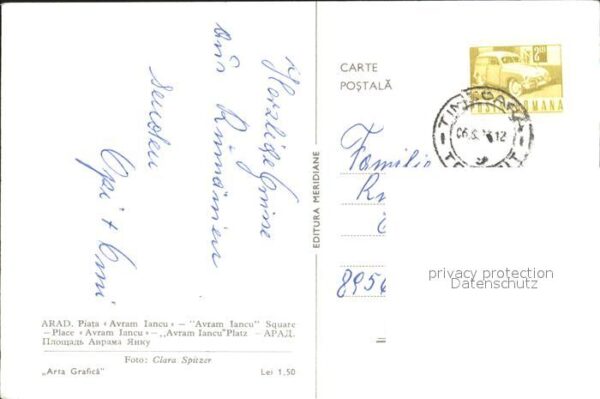 Herzliche Grüsse
aus Rumänien
senden
Opi + Omi
ARAD. Piața «Avram Iancu» – "Avram Iancu" Square
–Place «Avram Iancu»–„Avram Iancu"Platz – АРАД.
Площадь Аврама Янку
Foto: Clara Spitzer
„Arta Grafică"
Lei 1,50
EDITURA MERIDIANE
CARTE
POȘTALĂ
2 LEI
POSTA ROMANA
TIMIȘOARA
Familie
895
privacy protection
Datenschutz